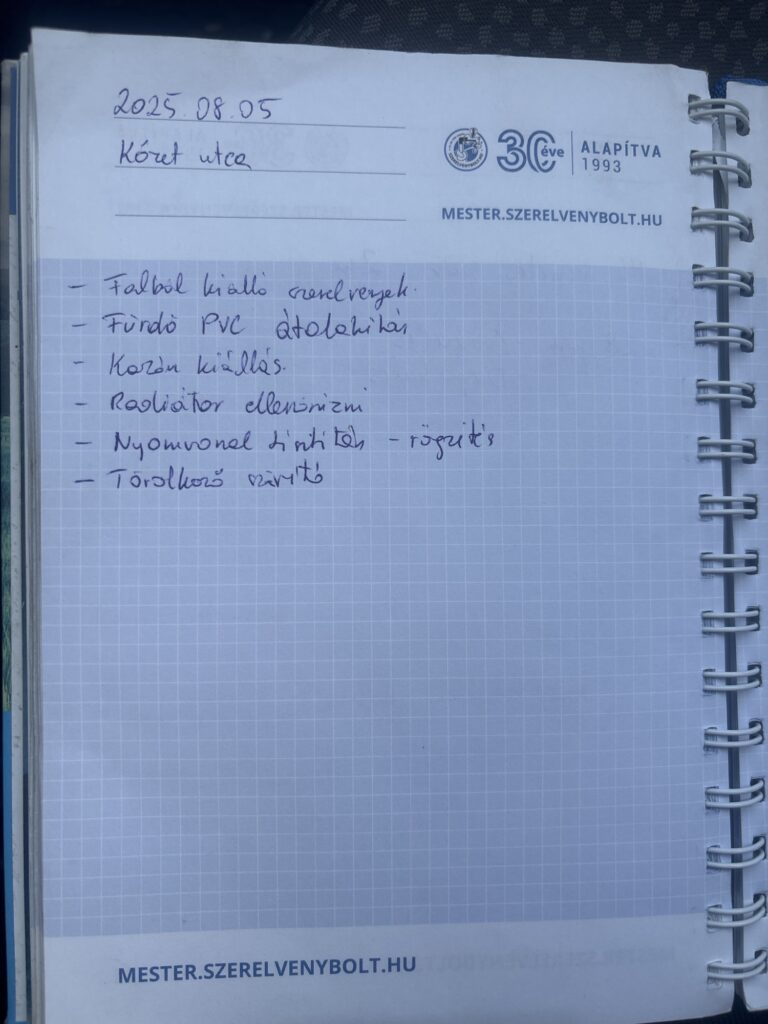 2025.08.05
Kóret utca
30 éve
ALAPÍTVA
1993
MESTER.SZERELVENYBOLT.HU
- Falból kiálló szerelvények.
- Fürdő PVC átalakítás
- Kazán kiállás.
- Radiátor ellenőrizni
- Nyomvonal - rögzítés
- Törölköző szárító
MESTER.SZERELVENYBOLT.HU